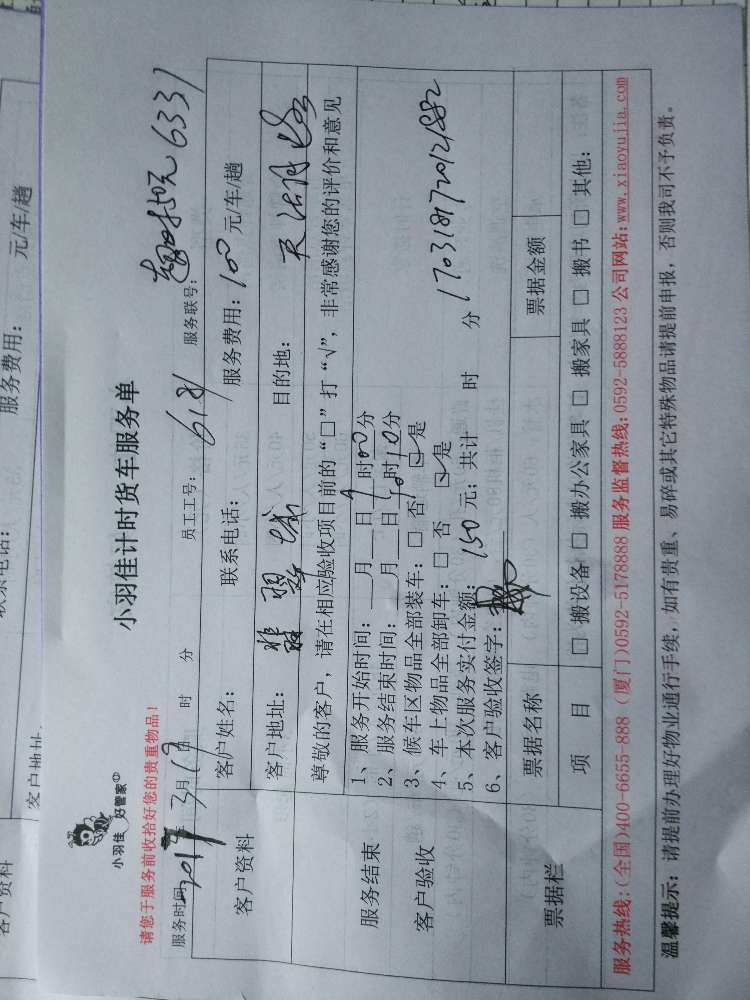 服务费用： 元/车/趟
客户地址:
客户资料
小羽佳 好管家
小羽佳计时货车服务单
请您于服务前收拾好您的贵重物品！
服务时间 2017年3月19日 时 分 员工工号： 618 服务联号： 超时50元 6331
客户资料
客户姓名： 联系电话： 服务费用：100 元/车/趟
客户地址： 翡翠城 目的地：
尊敬的客户，请在相应验收项目前的“□”打“√”，非常感谢您的评价和意见
服务结束
客户验收
1、服务开始时间：__月__日9时00分
2、服务结束时间：__月__日10时10分
3、候车区物品全部装车：□ 否 ☑是
4、车上物品全部卸车：□ 否 ☑是
5、本次服务实付金额：150元；共计 时 分 1703181720121882
6、客户验收签字：
票据栏
票据名称 票据金额
项 目 □ 搬设备 □ 搬办公家具 □ 搬家具 □ 搬书 □ 其他：
服务热线：(全国)400-6655-888 (厦门)0592-5178888 服务监督热线:0592-5888123 公司网站：www.xiaoyujia.com
温馨提示：请提前办理好物业通行手续，如有贵重、易碎或其它特殊物品请提前申报，否则我司不予负责。